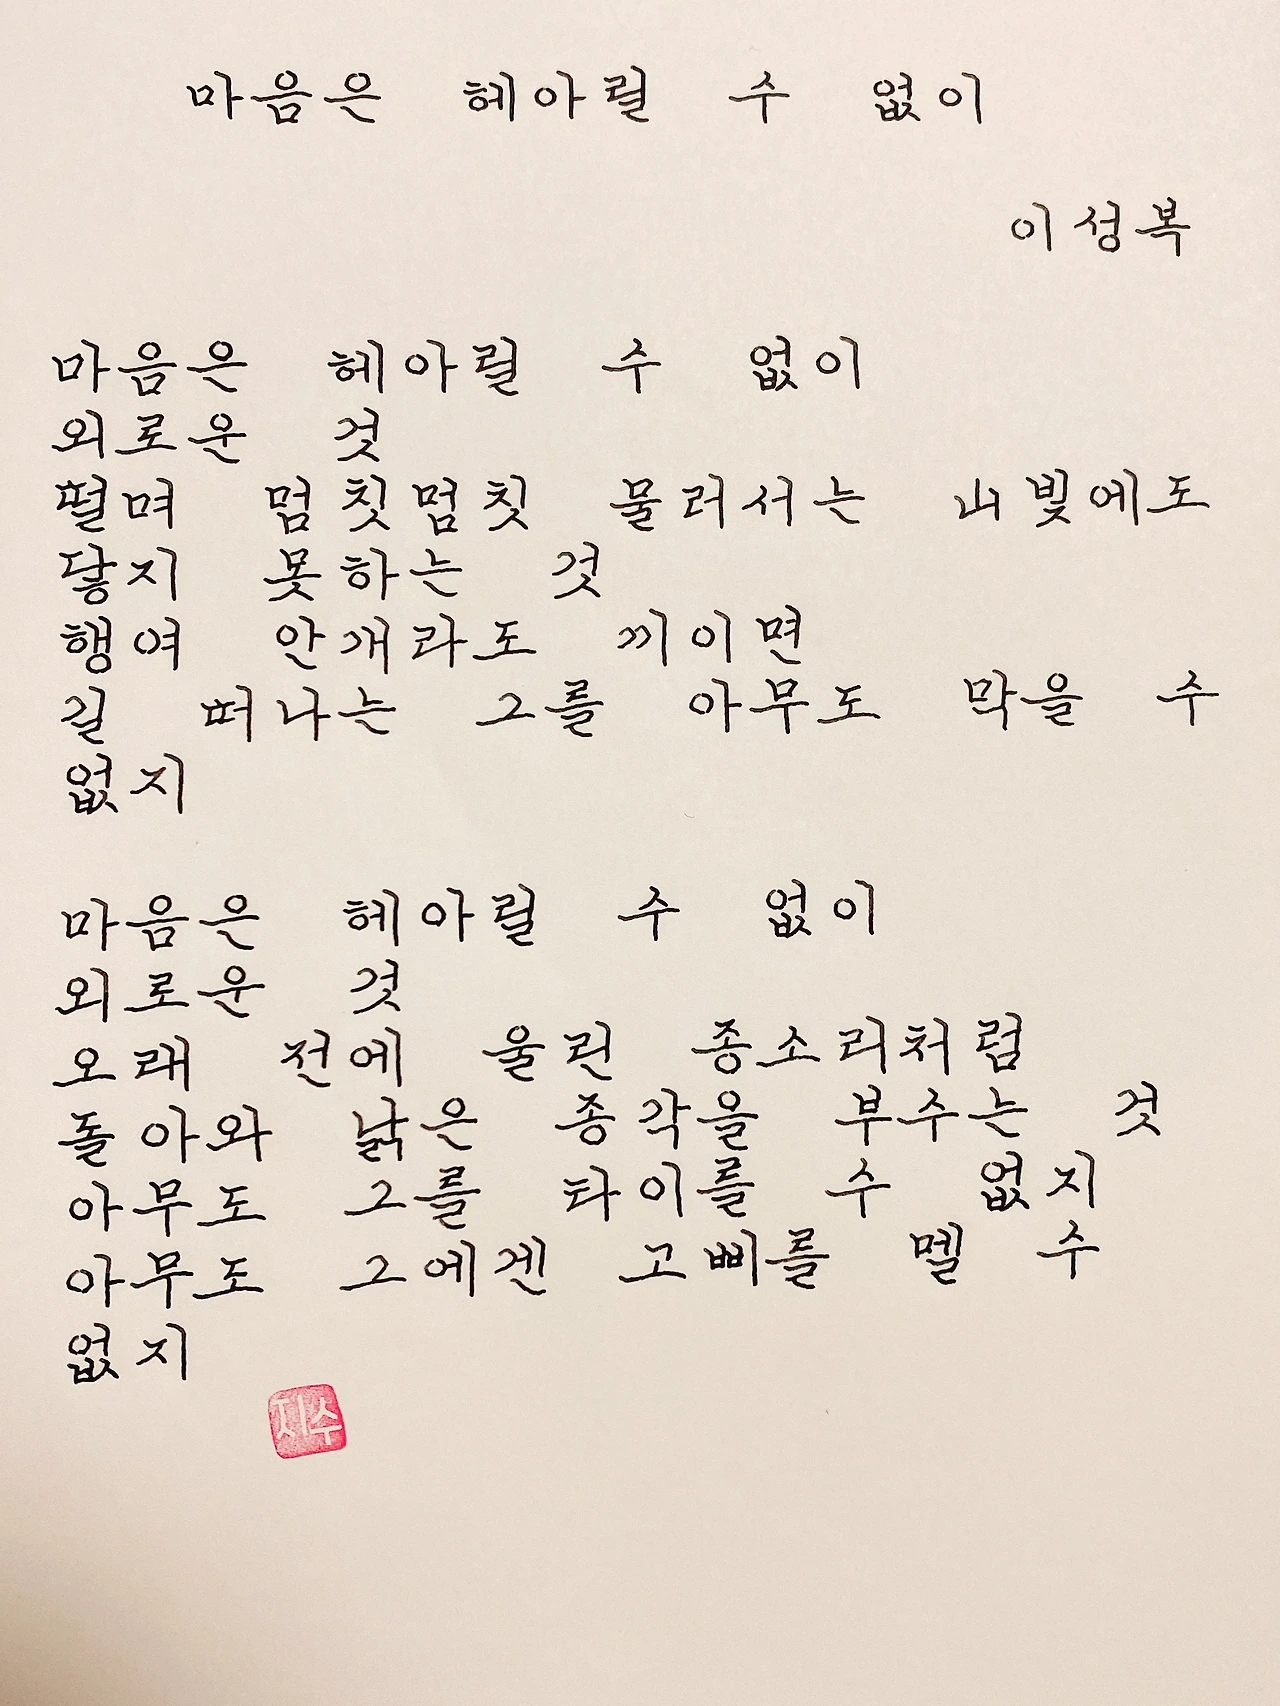 마음은 헤아릴 수 없이
이성복
마음은 헤아릴 수 없이
외로운 것
떨며 멈칫멈칫 물러서는 山빛에도
닿지 못하는 것
행여 안개라도 끼이면
길 떠나는 그를 아무도 막을 수
없지
마음은 헤아릴 수 없이
외로운 것
오래 전에 울린 종소리처럼
돌아와 낡은 종각을 부수는 것
아무도 그를 타이를 수 없지
아무도 그에겐 고삐를 멜 수
없지
지수